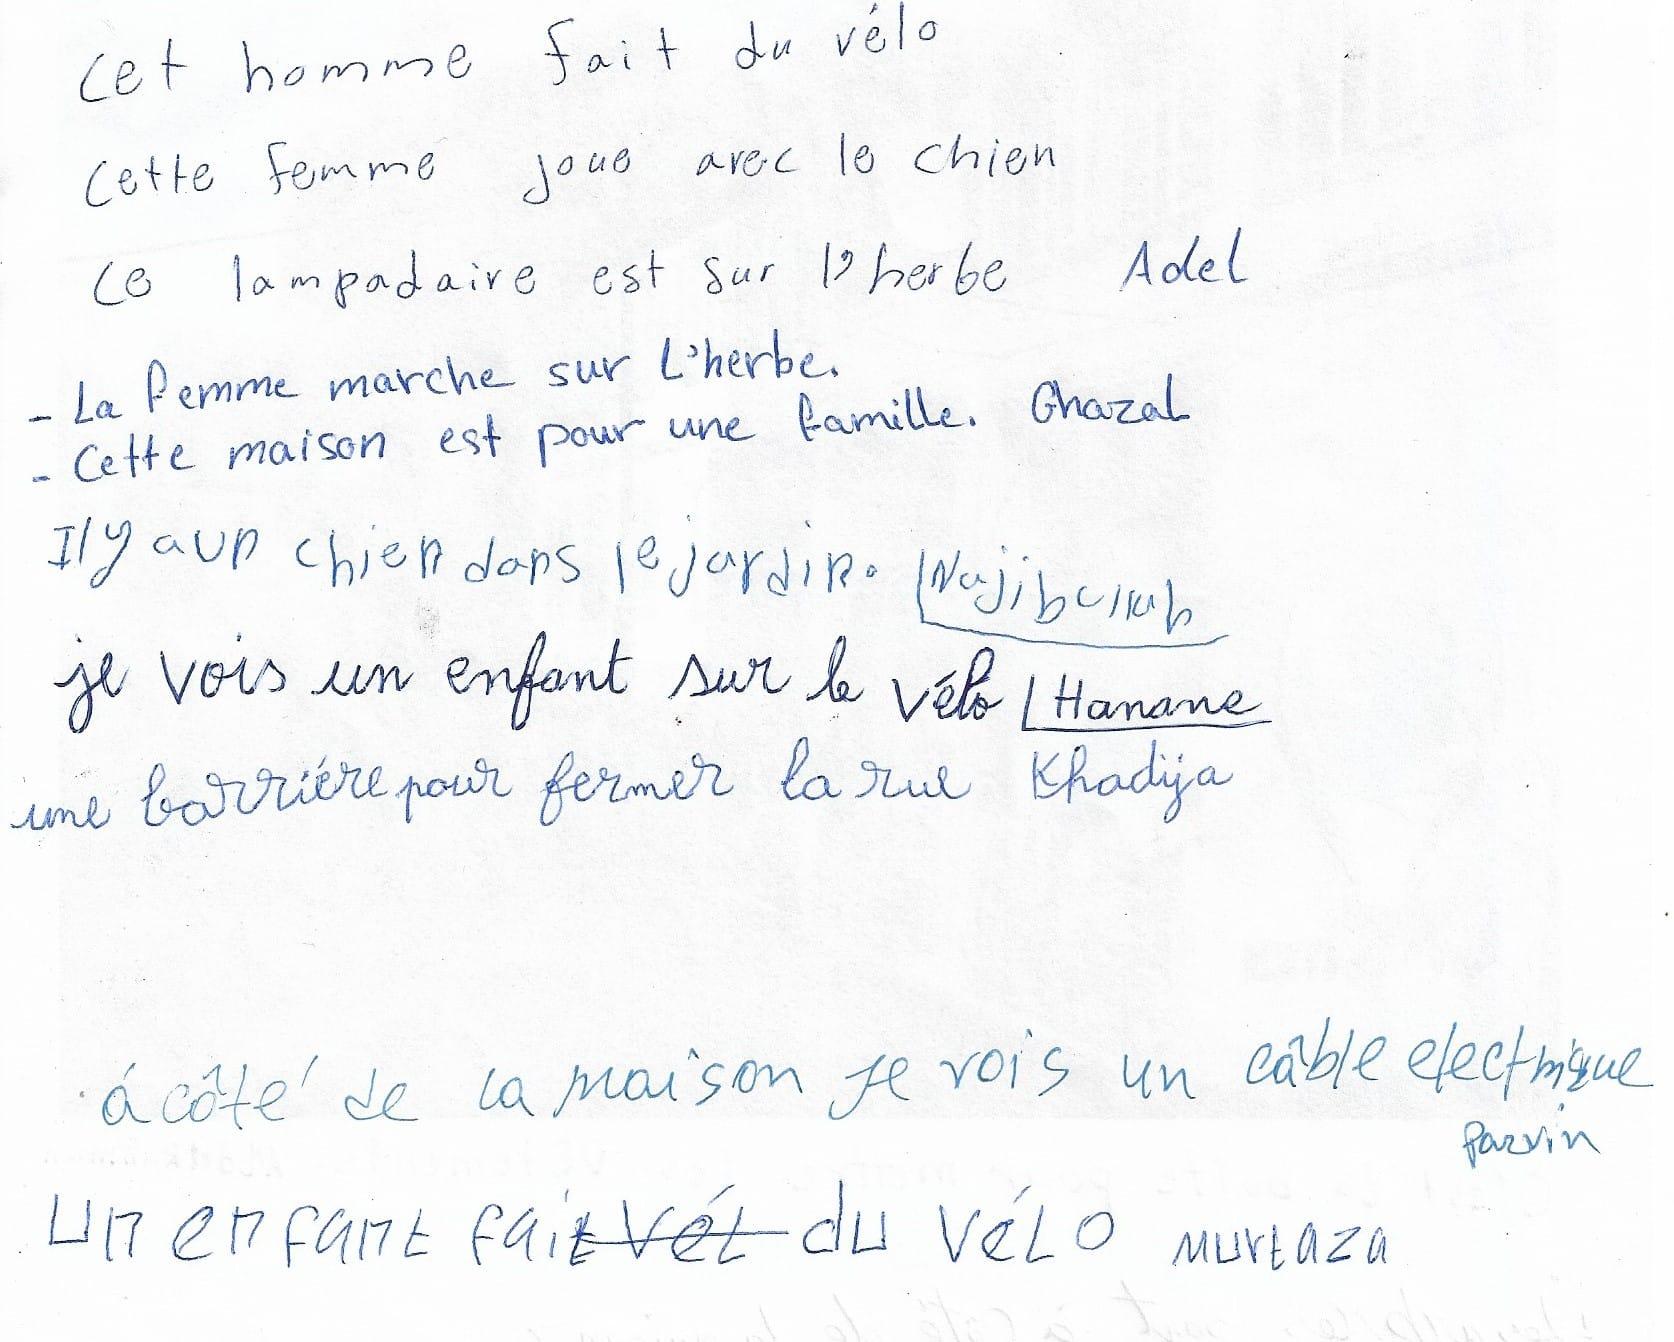 Cet homme fait du vélo
Cette femme joue avec le chien
Ce lampadaire est sur l'herbe Adel
- La femme marche sur L'herbe.
- Cette maison est pour une famille. Ghazal
Il y a un chien dans le jardin.
je vois un enfant sur le vélo Hanane
une barriére pour fermer la rue Khadija
á côté de la maison je vois un câble electrique
Parvin
un enfant fait vél du vélo murtaza